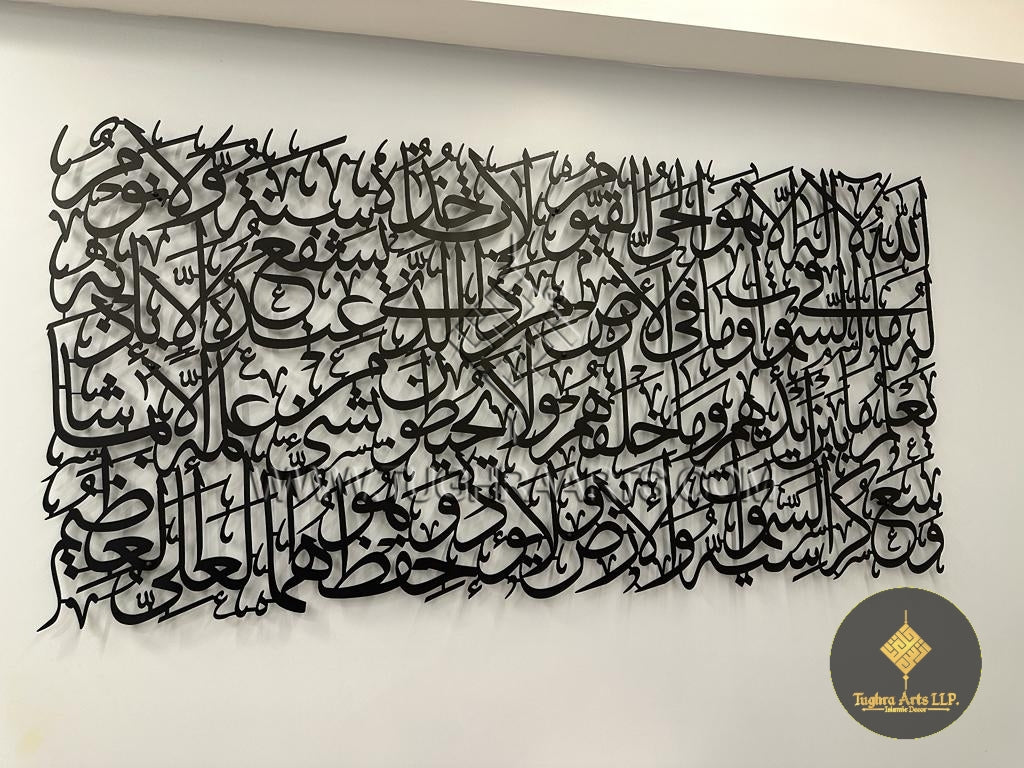 الله لا إله إلا هو الحي القيوم لا تأخذه سنة ولا نوم
له ما في السموات وما في الأرض من ذا الذي يشفع عنده إلا بإذنه
يعلم ما بين أيديهم وما خلفهم ولا يحيطون بشيء من علمه إلا بما شاء
وسع كرسيه السموات والأرض ولا يؤده حفظهما وهو العلي العظيم
WWW.TUGHRAARTS.COM
Tughra Arts LLP.
Islamic Decor